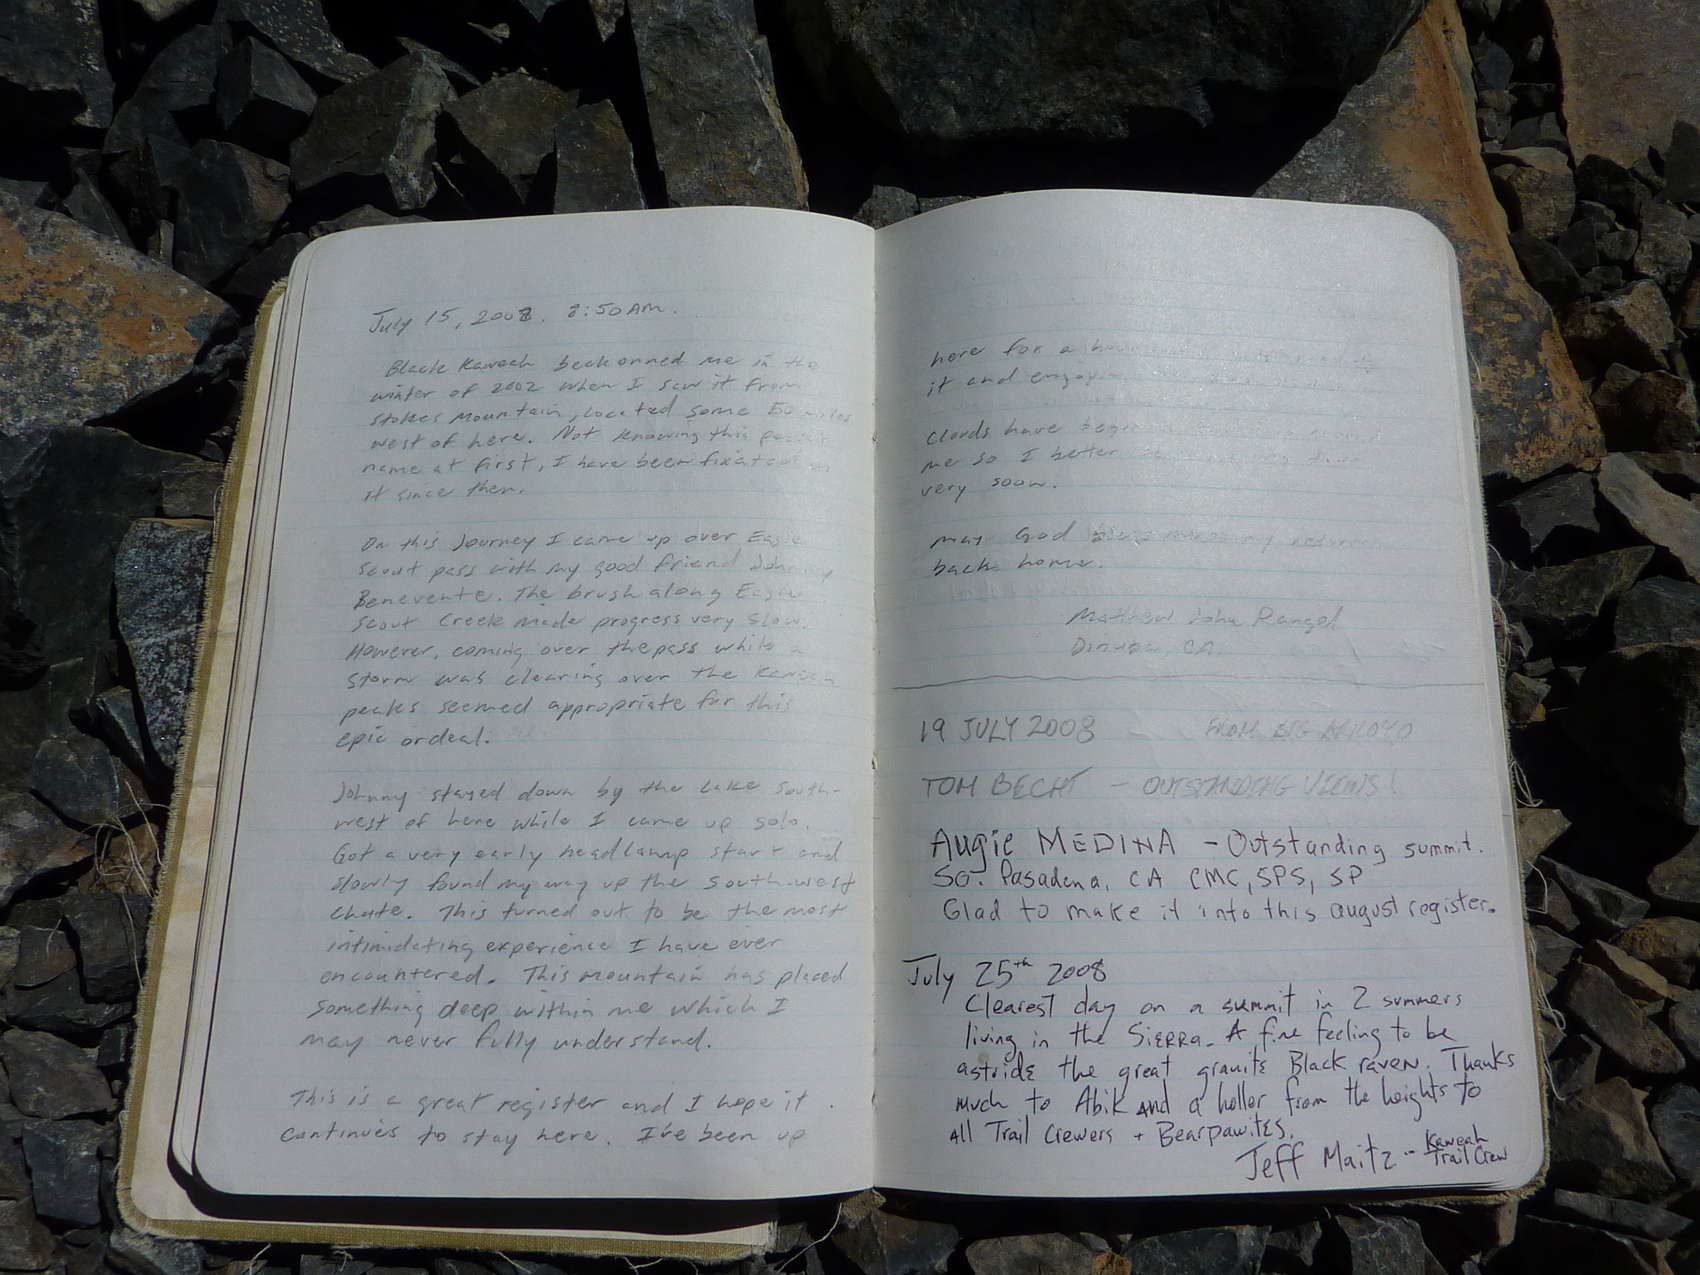 July 15, 2008. 8:50 AM.
Black Kaweah beckonned me in the
winter of 2002 when I saw it from
Stokes Mountain, located some 50 miles
west of here. Not knowing this
name at first, I have been fixated on
it since then.
On this Journey I came up over Eagle
Scout pass with my good friend Johnny
Benevente. The brush along Eagle
Scout Creek made progress very slow.
However, coming over the pass while a
storm was clearing over the Kaweah
peaks seemed appropriate for this
epic ordeal.
Johnny stayed down by the lake south-
west of here while I came up solo.
Got a very early headlamp start and
slowly found my way up the south-west
chute. This turned out to be the most
intimidating experience I have ever
encountered. This mountain has placed
something deep within me which I
may never fully understand.
This is a great register and I hope it
continues to stay here. I've been up
here for a
it and
Clouds have
me so I better
very soon.
may God my return
back home.
Matthew John Rangel
Dinuba, CA.
19 JULY 2008 FROM BIG ARROYO
TOM BECHT - OUTSTANDING VIEWS!
Augie MEDINA - Outstanding summit.
So. Pasadena, CA CMC, SPS, SP
Glad to make it into this august register.
July 25th 2008
Clearest day on a summit in 2 summers
living in the Sierra. A fine feeling to be
astride the great granite Black raven. Thanks
much to Abik and a holler from the heights to
All Trail Crewers + Bearpawites.
Jeff Maitz - Kaweah
Trail Crew